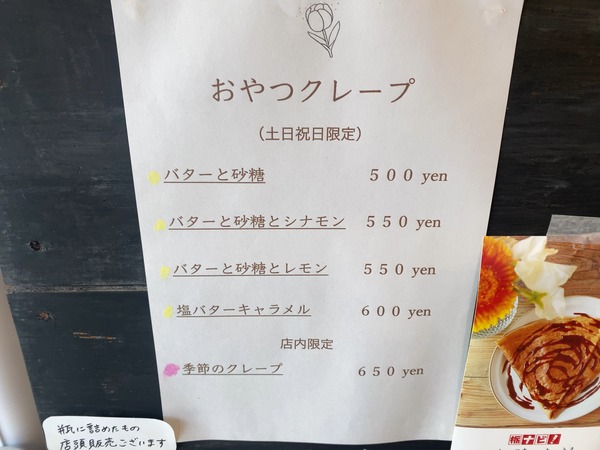 おやつクレープ
(土日祝日限定)
バターと砂糖 500 yen
バターと砂糖とシナモン 550 yen
バターと砂糖とレモン 550 yen
塩バターキャラメル 600 yen
店内限定
季節のクレープ 650 yen
瓶に詰めたもの
店頭販売ございます
栃ナビ!